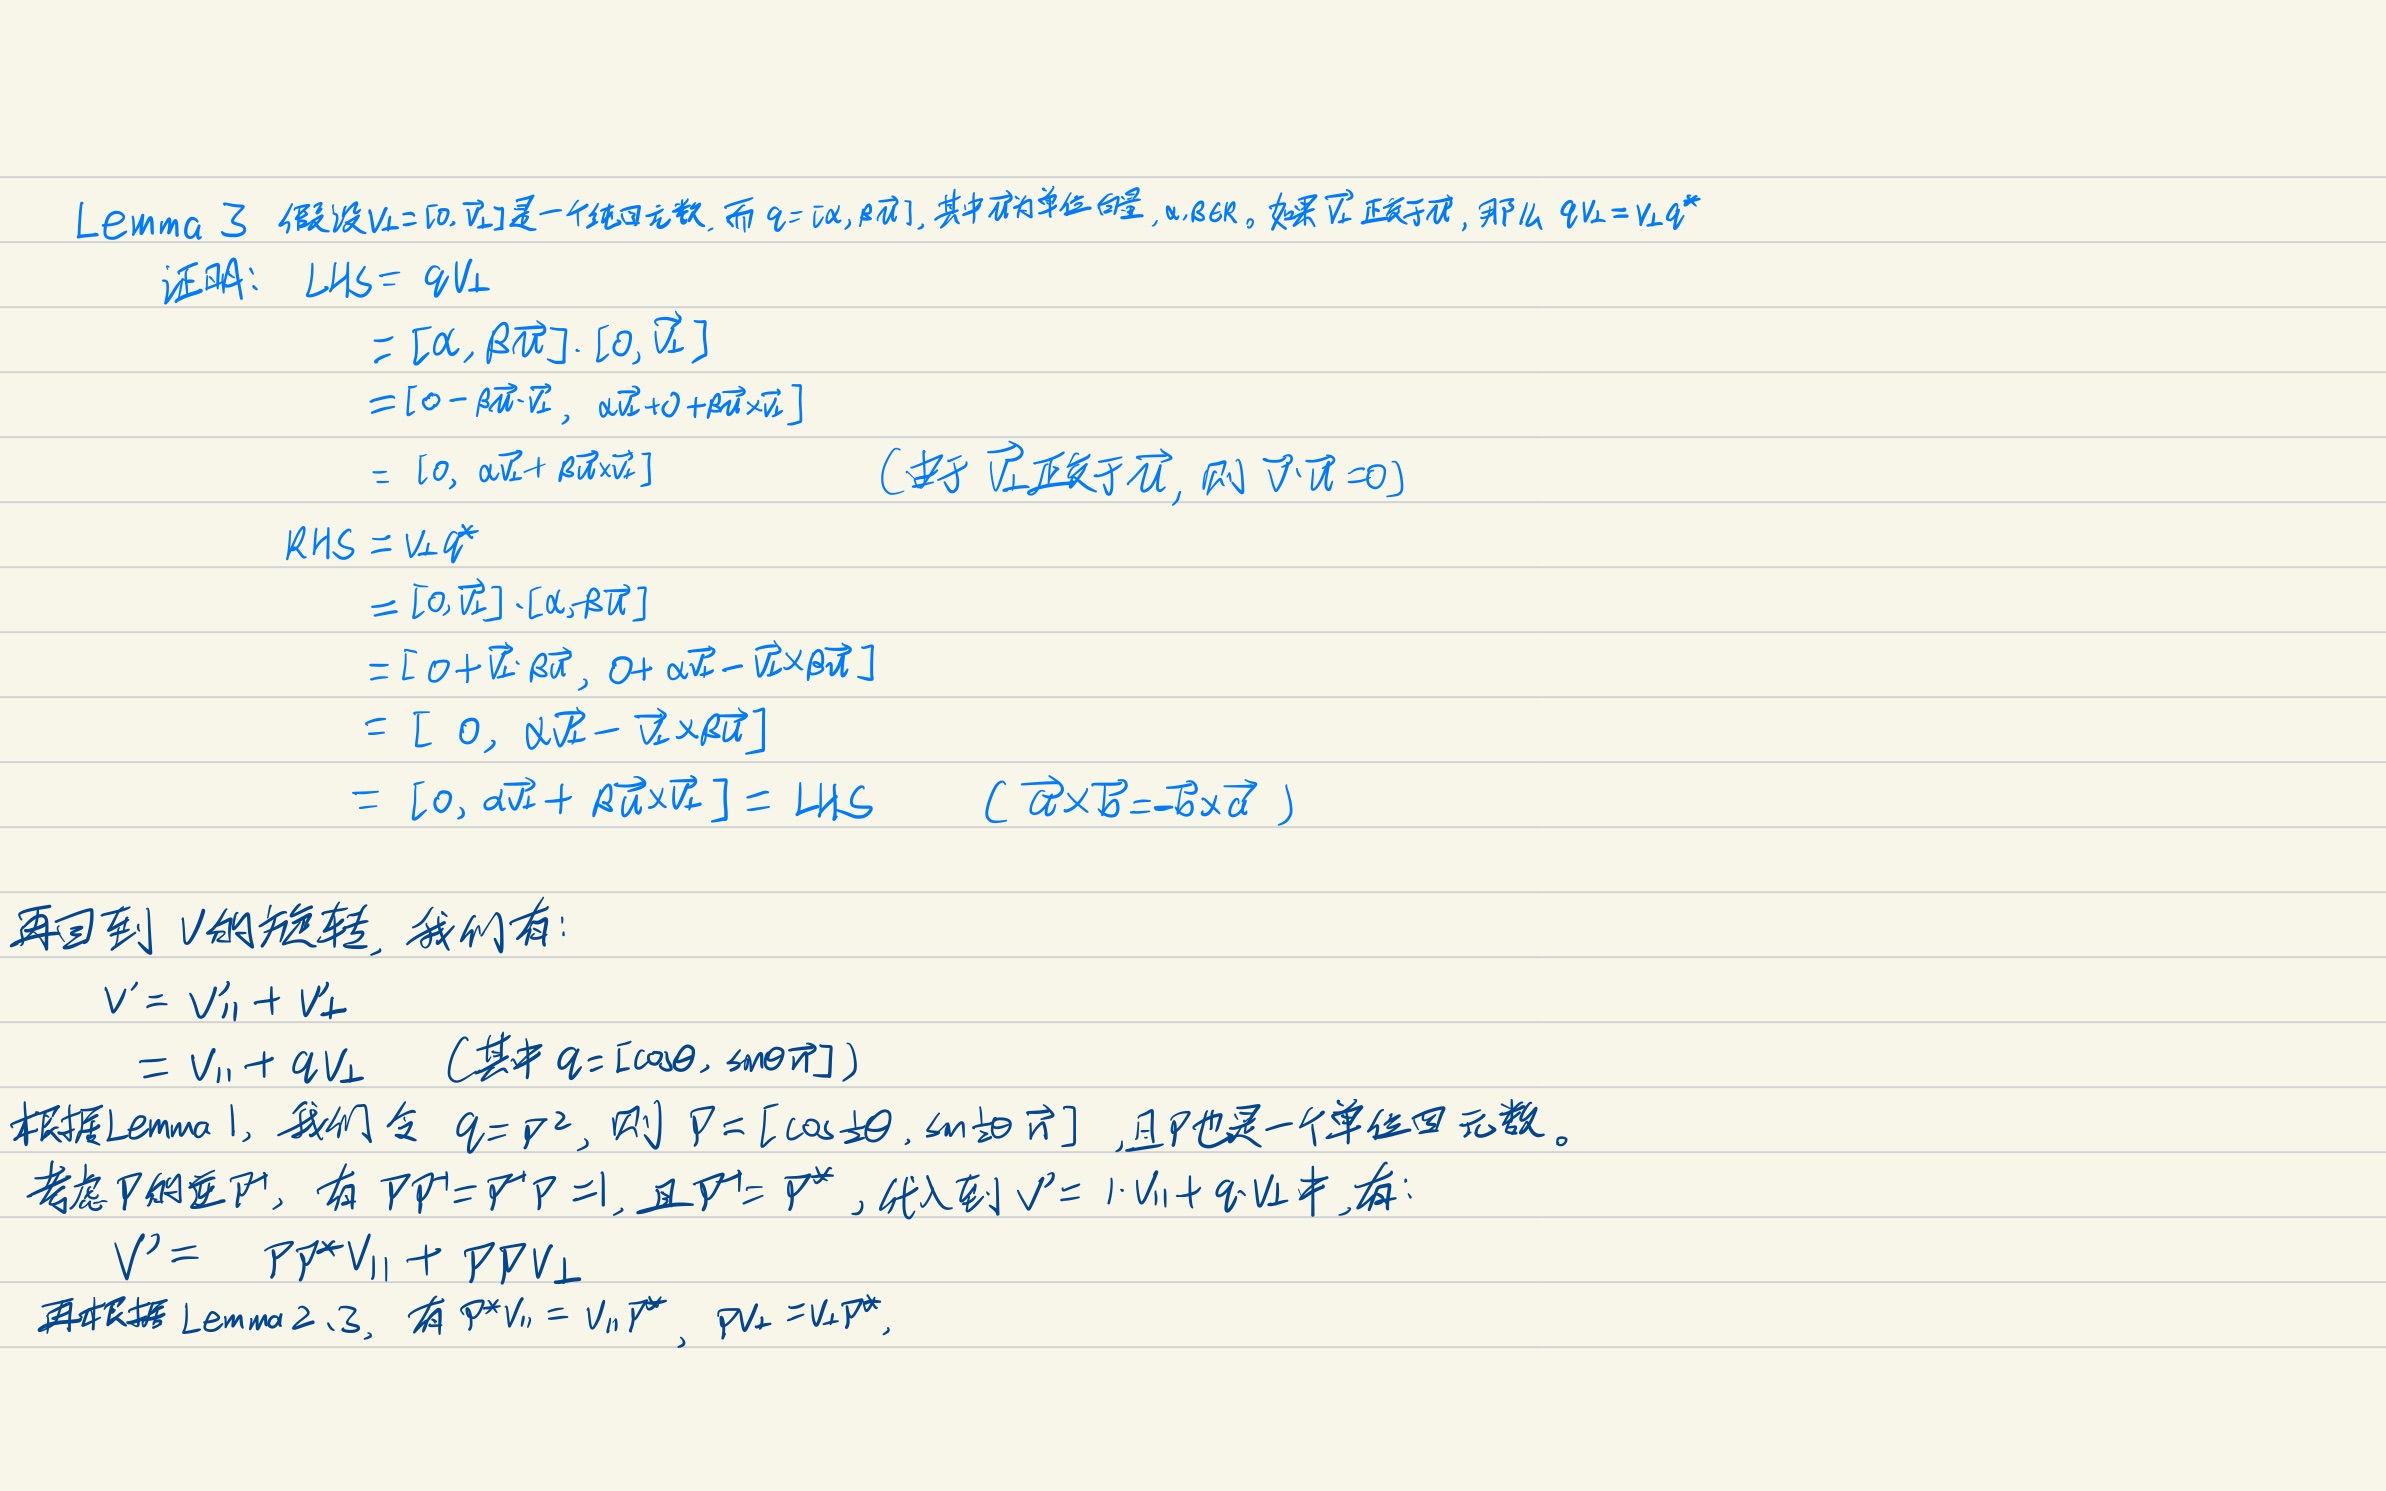 Lemma 3 假设v⊥=[0, v⃗⊥]是一个纯四元数, 而 q=[α, βu⃗], 其中u⃗为单位向量, α,β∈R。如果 v⃗⊥ 正交于u⃗, 那么 qv⊥=v⊥q*
证明: LHS = qv⊥
= [α, βu⃗]·[0, v⃗⊥]
= [0 - βu⃗·v⃗⊥, αv⃗⊥+0+βu⃗×v⃗⊥]
= [0, αv⃗⊥+ βu⃗×v⃗⊥] (由于 v⃗⊥正交于u⃗, 则 v⃗·u⃗=0)
RHS = v⊥q*
= [0, v⃗⊥]·[α, -βu⃗]
= [0+v⃗⊥·βu⃗, 0+αv⃗⊥-v⃗⊥×βu⃗]
= [0, αv⃗⊥ - v⃗⊥×βu⃗]
= [0, αv⃗⊥+ βu⃗×v⃗⊥] = LHS (a⃗×b⃗=-b⃗×a⃗)
再回到 v的旋转, 我们有:
v′= v′∥ + v′⊥
= v∥ + qv⊥ (其中 q=[cosθ, sinθn⃗])
根据Lemma 1, 我们令 q=p², 则 p=[cos½θ, sin½θ n⃗], 且p也是一个单位四元数。
考虑p的逆p⁻¹, 有 pp⁻¹=p⁻¹p=1, 且p⁻¹=p*, 代入到 v′= 1·v∥+q·v⊥中, 有:
v′= pp*v∥ + ppv⊥
再根据 Lemma 2、3, 有 p*v∥ = v∥p*, pv⊥=v⊥p*,